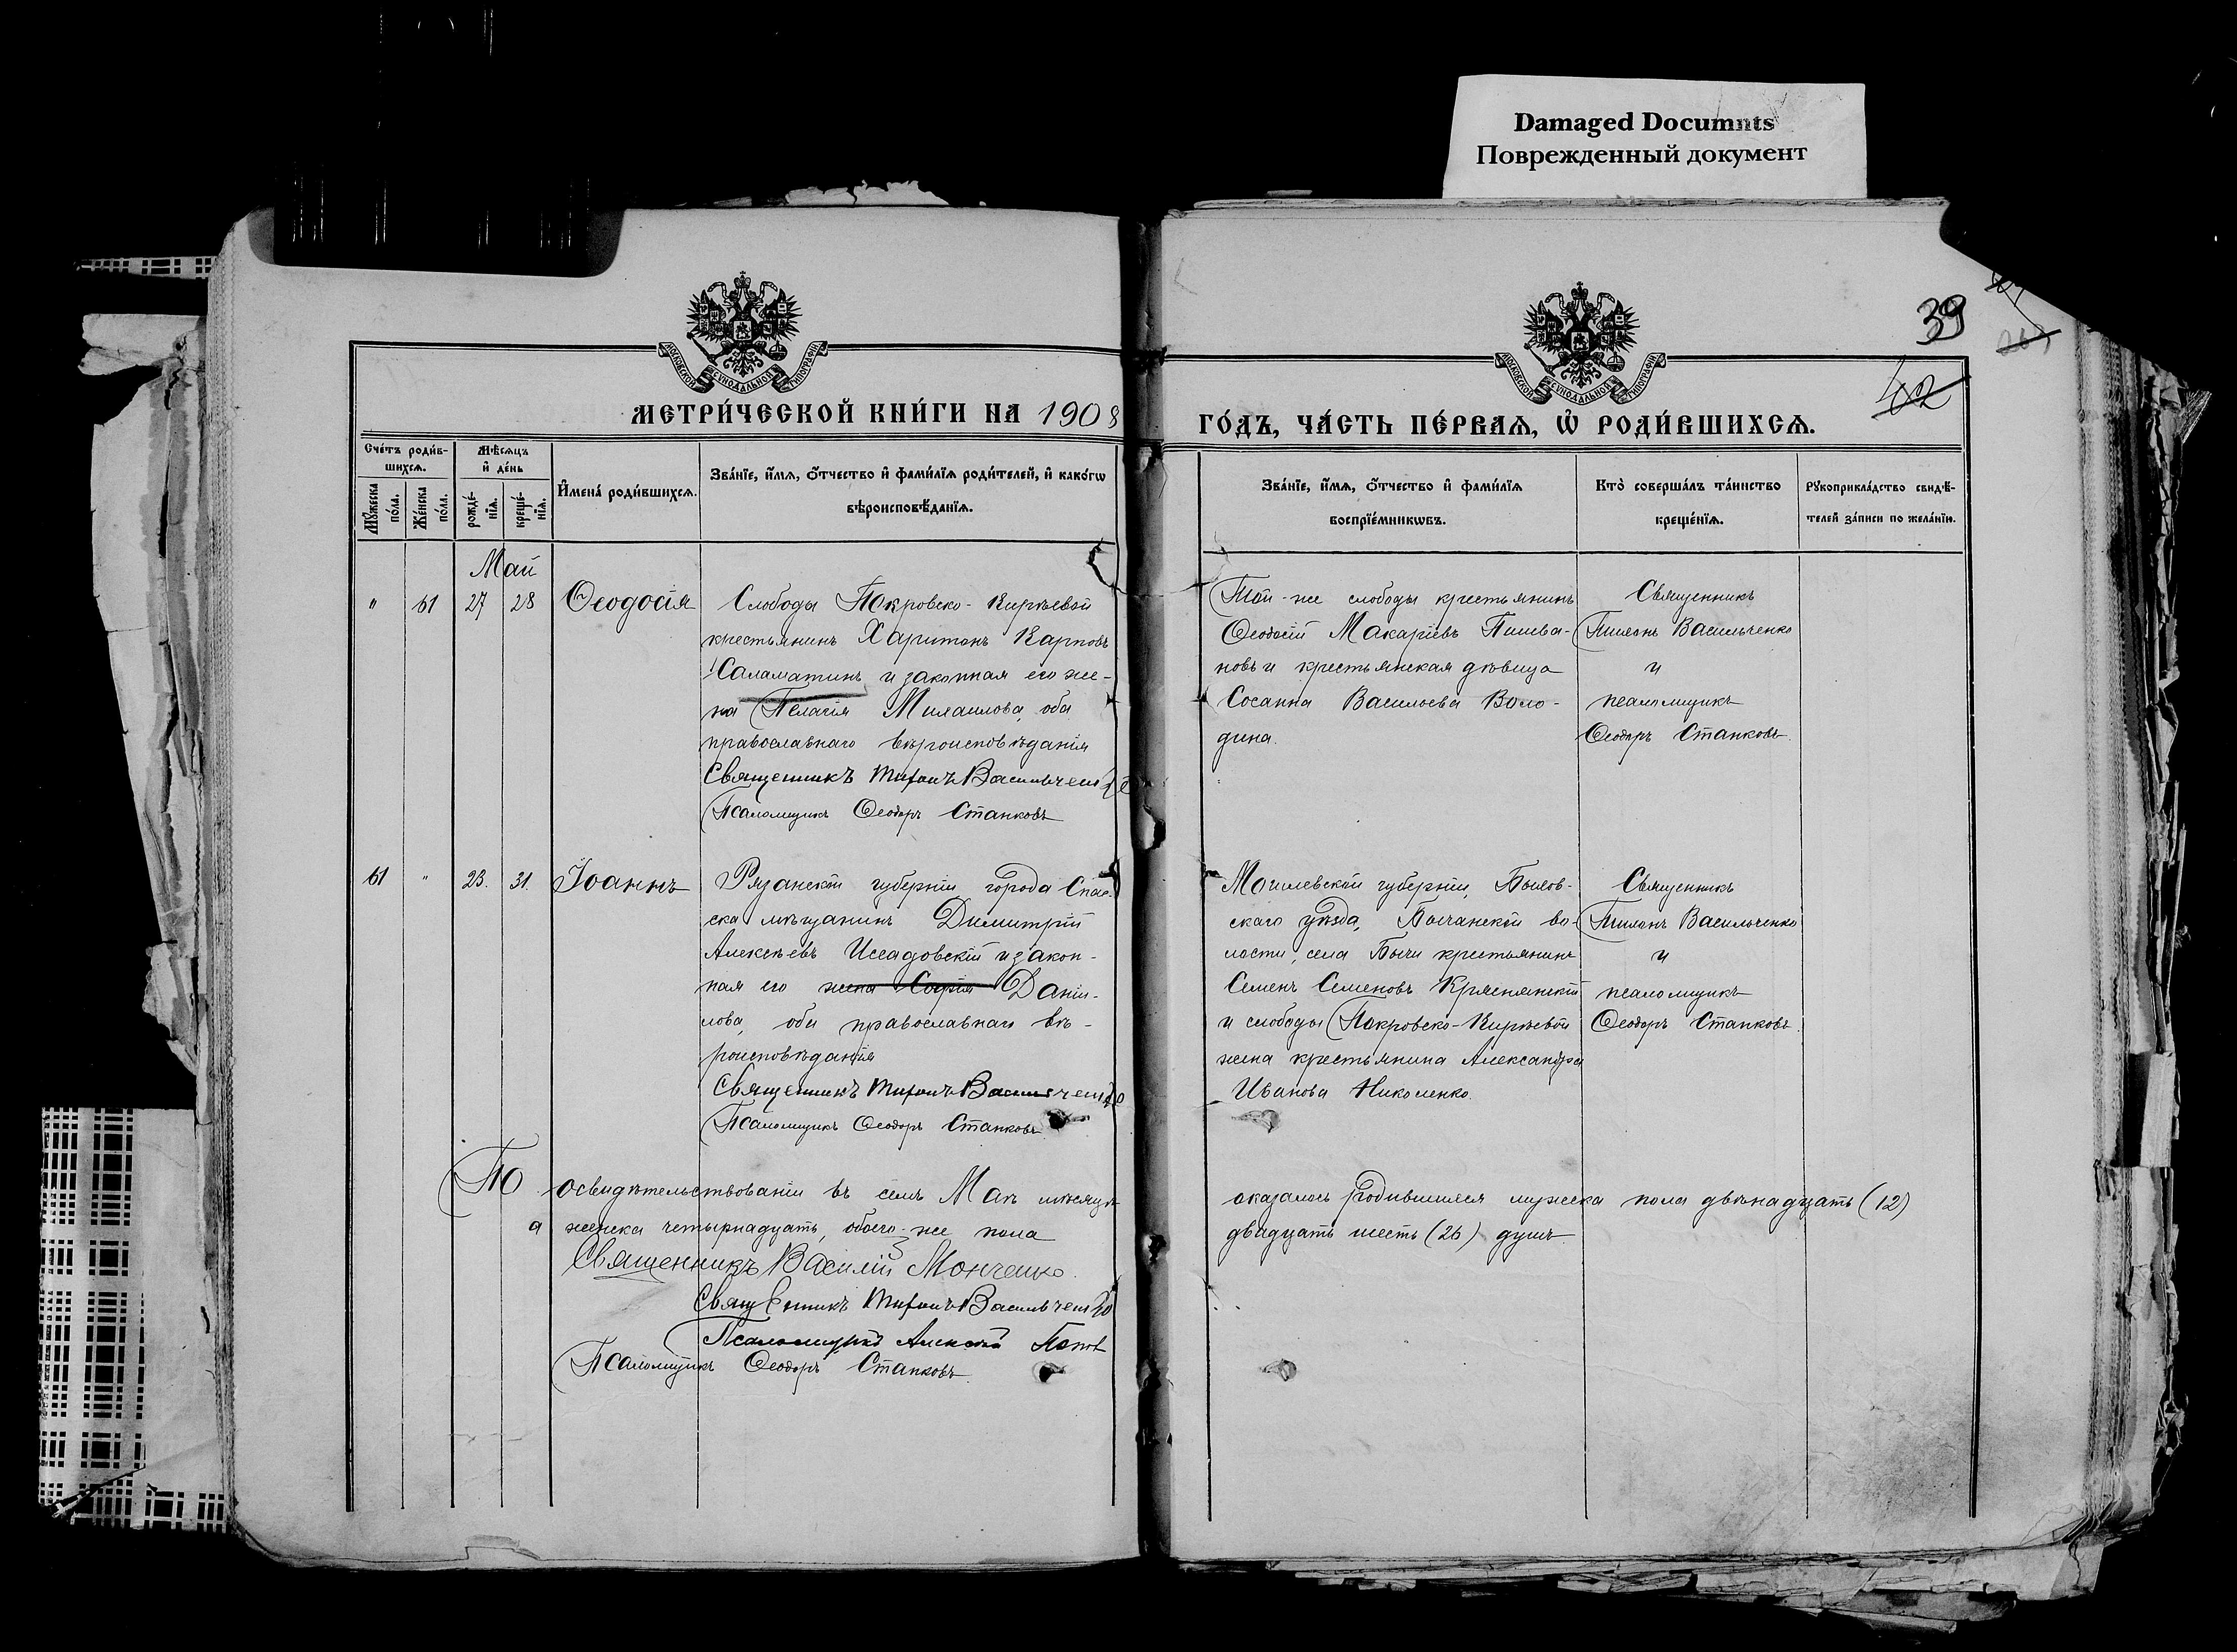 Damaged Documnts
Поврежденный документ
39
42
МОСКОВСКОЙ СѴНОДАЛЬНОЙ ТИПОГРАФІИ
МОСКОВСКОЙ СѴНОДАЛЬНОЙ ТИПОГРАФІИ
МЕТРИ́ЧЕСКОЙ КНИ́ГИ НА 1908
ГО́ДЪ, ЧА́СТЬ ПЕ́РВАѦ, Ѽ РОДИ́ВШИХСѦ.
Сче́тъ роди́в-
шихсѧ.
Мꙋ́жеска по́ла.
Же́нска по́ла.
Мѣ́сѧцъ
и҆ де́нь
рожде́-
нїѧ.
креще́-
нїѧ.
И҆мена̀ роди́вшихсѧ.
Зва́нїе, и҆́мѧ, ѻ҆́тчество и҆ фами́лїѧ роди́телей, и҆ како́гѡ
вѣроисповѣ́данїѧ.
Зва́нїе, и҆́мѧ, ѻ҆́тчество и҆ фами́лїѧ
воспрїе́мникѡвъ.
Кто̀ соверша́лъ та́инство
креще́нїѧ.
Рꙋкоприкла́дство свидѣ́-
телей за́писи по жела́нїю.
Май
" 61 27 28 Ѳеодосія
Слободы Покровско-Кирѣевой
крестьянинъ Харитонъ Карповъ
Саламатинъ и законная его же-
на Пелагія Михаилова, оба
православнаго вѣроисповѣданія
Священникъ Тихонъ Васильченко
Псаломщикъ Ѳеодоръ Станковъ
Той-же слободы крестьянинъ
Ѳеодосій Макаріевъ
новъ и крестьянская дѣвица
Сосанна Васильева Воло-
дина.
Священникъ
Тихонъ Васильченко
и
псаломщикъ
Ѳеодоръ Станковъ.
61 " 23. 31. Іоаннъ
Рязанской губерніи, города Спас-
ска мѣщанинъ Димитрій
Алексѣевъ Исадовскій и закон-
ная его жена Софія Даніи-
лова, оба православнаго вѣ-
роисповѣданія
Священникъ Тихонъ Васильченко
Псаломщикъ Ѳеодоръ Станковъ.
Могилевской губерніи,
скаго уѣзда, во-
лости, села крестьянинъ
Семенъ Семеновъ
и слободы Покровско-Кирѣевой
жена крестьянина Александра
Иванова Николенко.
Священникъ
Тихонъ Васильченко
и
псаломщикъ
Ѳеодоръ Станковъ.
По освидѣтельствованіи въ семъ Маѣ мѣсяцѣ оказалось родившихся мужска пола двѣнадцать (12)
а женска четырнадцать, обоего-же пола двадцать шесть (26) душъ.
Священникъ Василій Монченко.
Священникъ Тихонъ Васильченко
Псаломщикъ Алексѣй Попов
Псаломщикъ Ѳеодоръ Станковъ.